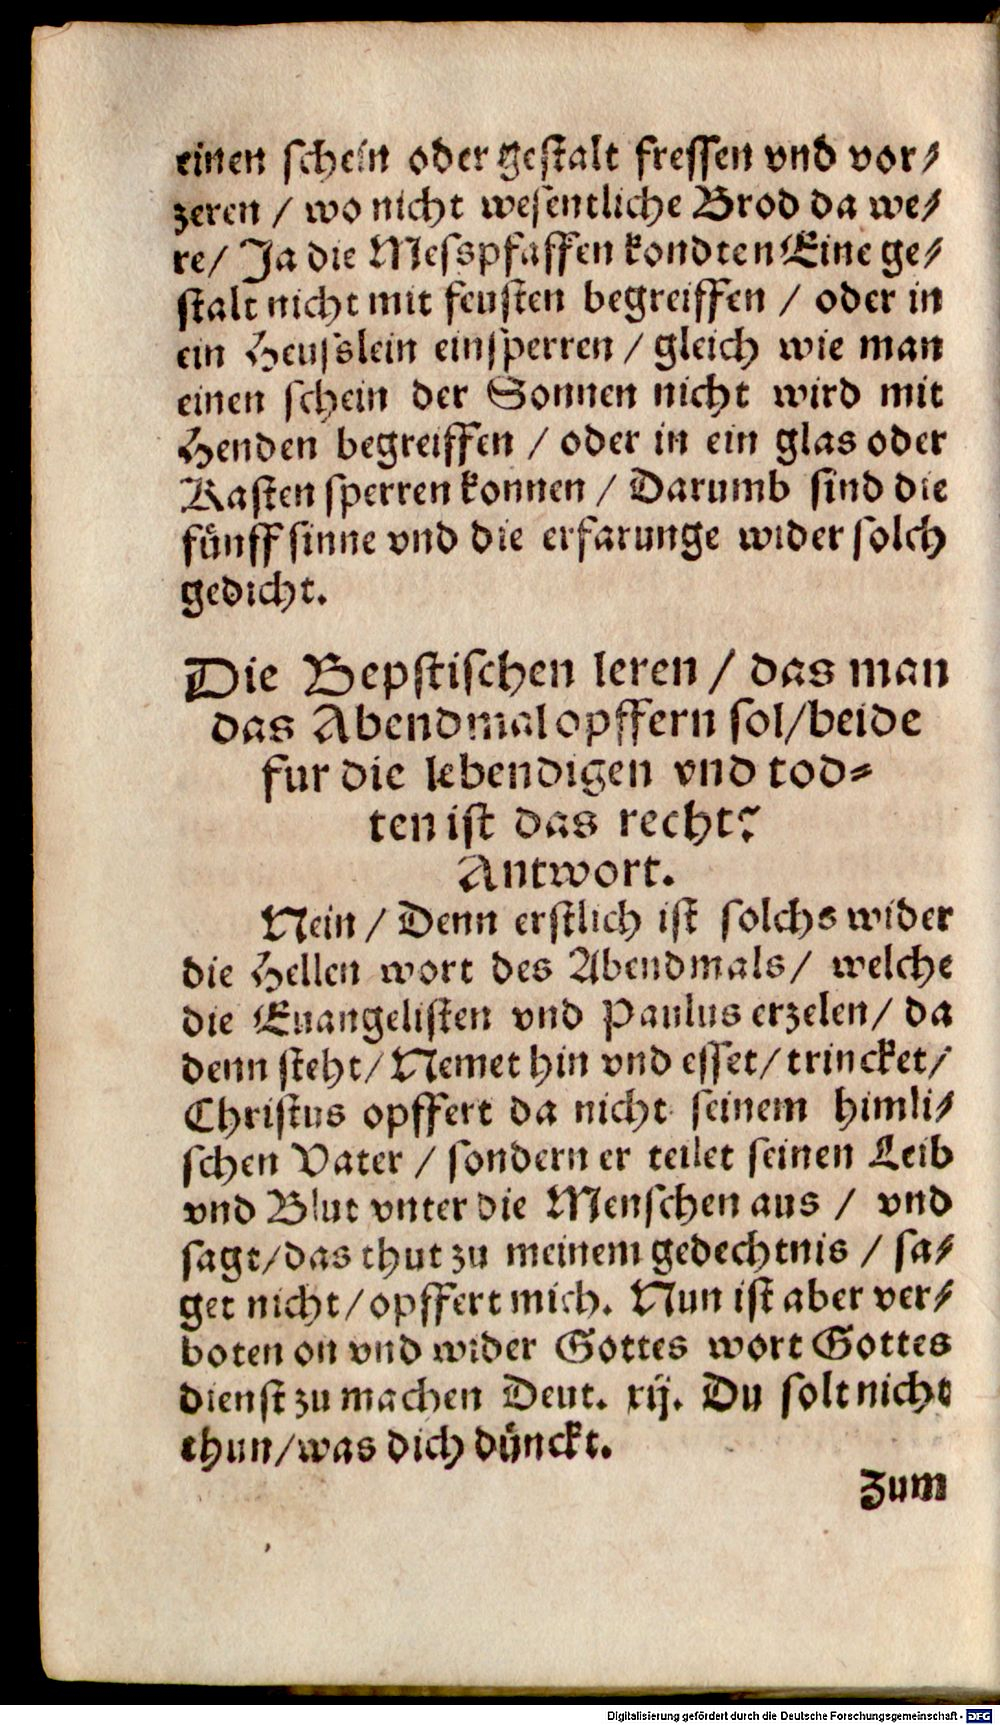 einen schein oder gestalt fressen vnd vor⸗
zeren / wo nicht wesentliche Brod da we⸗
re/ Ja die Messpfaffen kondten Eine ge⸗
stalt nicht mit feusten begreiffen / oder in
ein Heusslein einsperren / gleich wie man
einen schein der Sonnen nicht wird mit
Henden begreiffen / oder in ein glas oder
Kasten sperren konnen / Darumb sind die
fünff sinne vnd die erfarunge wider solch
gedicht.
Die Bepstischen leren / das man
das Abendmal opffern sol/beide
fur die lebendigen vnd tod⸗
ten ist das recht?
Antwort.
Nein / Denn erstlich ist solchs wider
die Hellen wort des Abendmals/ welche
die Euangelisten vnd Paulus erzelen/ da
denn steht/ Nemet hin vnd esset/ trincket/
Christus opffert da nicht seinem himli⸗
schen Vater / sondern er teilet seinen Leib
vnd Blut vnter die Menschen aus / vnd
sagt/das thut zu meinem gedechtnis / sa⸗
get nicht/opffert mich. Nun ist aber ver⸗
boten on vnd wider Gottes wort Gottes
dienst zu machen Deut. xij. Du solt nicht
thun/was dich dünckt.
Zum
Digitalisierung gefördert durch die Deutsche Forschungsgemeinschaft - DFG